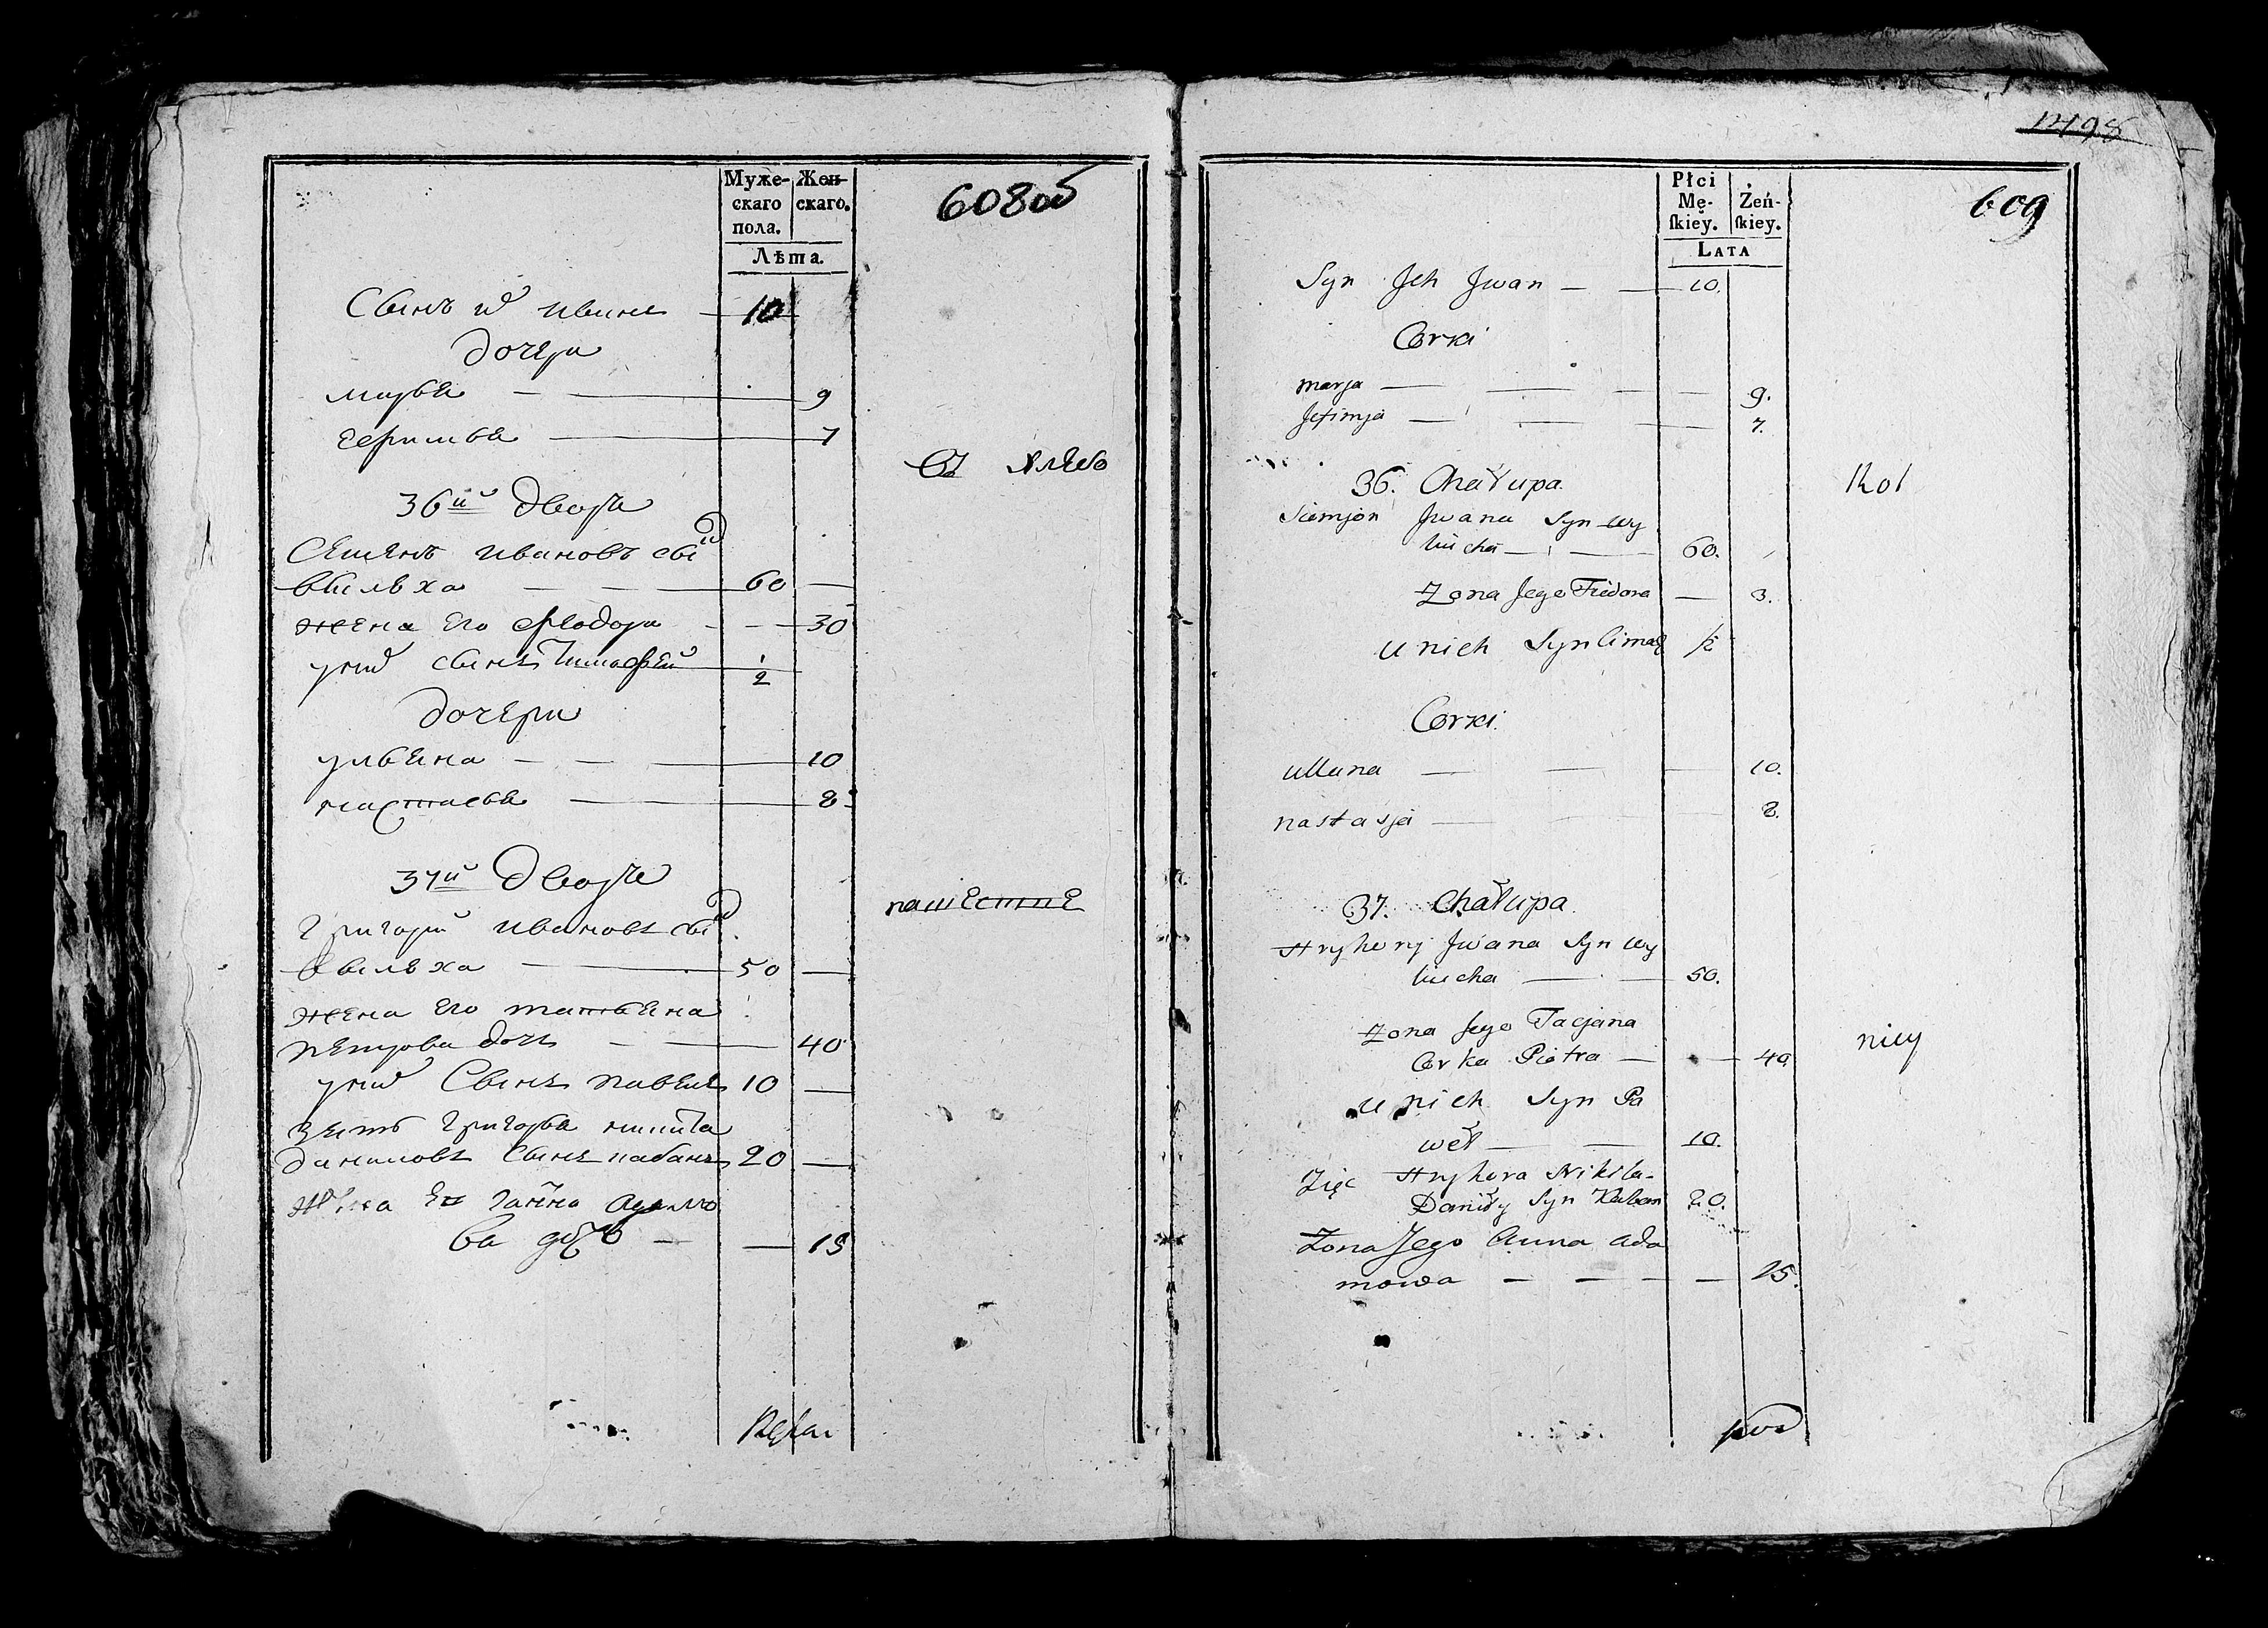 608 об
Муже-
скаго
пола.
Жен-
скаго.
Лѣта.
Сынъ их иванъ — 10
дочери
марья — 9
ефимья — 7
36й дворъ
Семенъ ивановъ сын
вылюха — 60 —
жена его Феодора — 30
у них сынъ Тимофей 1/2
дочери
ульяна — 10
настасья — 8
37й дворъ
Григорий ивановъ сын
вылюха — 50 —
жена его татьяна
петрова дочь — 40
у них Сынъ павелъ 10 —
зять григорья никита
даниловъ сынъ кабанъ 20 —
жена ег ганна адамо
ва дочь — 15
пашестне
1498
609
Płci
Mę-
skiey.
Żeń-
skiey.
LATA
Syn Jch Jwan — 10.
Corki
marja — 9.
Jefimja — 7.
36. Chałupa.
Siemjon Jwana Syn wy
lucha — 60.
Żona Jego Fiedora — 3.
u nich Syn Cimoch 1/2
Corki.
ullana — 10.
nastasja — 8.
37. Chałupa.
Hryhory Jwana Syn wy
lucha — 50.
Żona Jego Tacjana
Corka Piotra — 40
u nich Syn Pa
weł — 10.
Zięc Hryhora Nikita
Daniły Syn Kaban 20.
Żona Jego Anna Ada
mowa — 15.
Rol
nicy